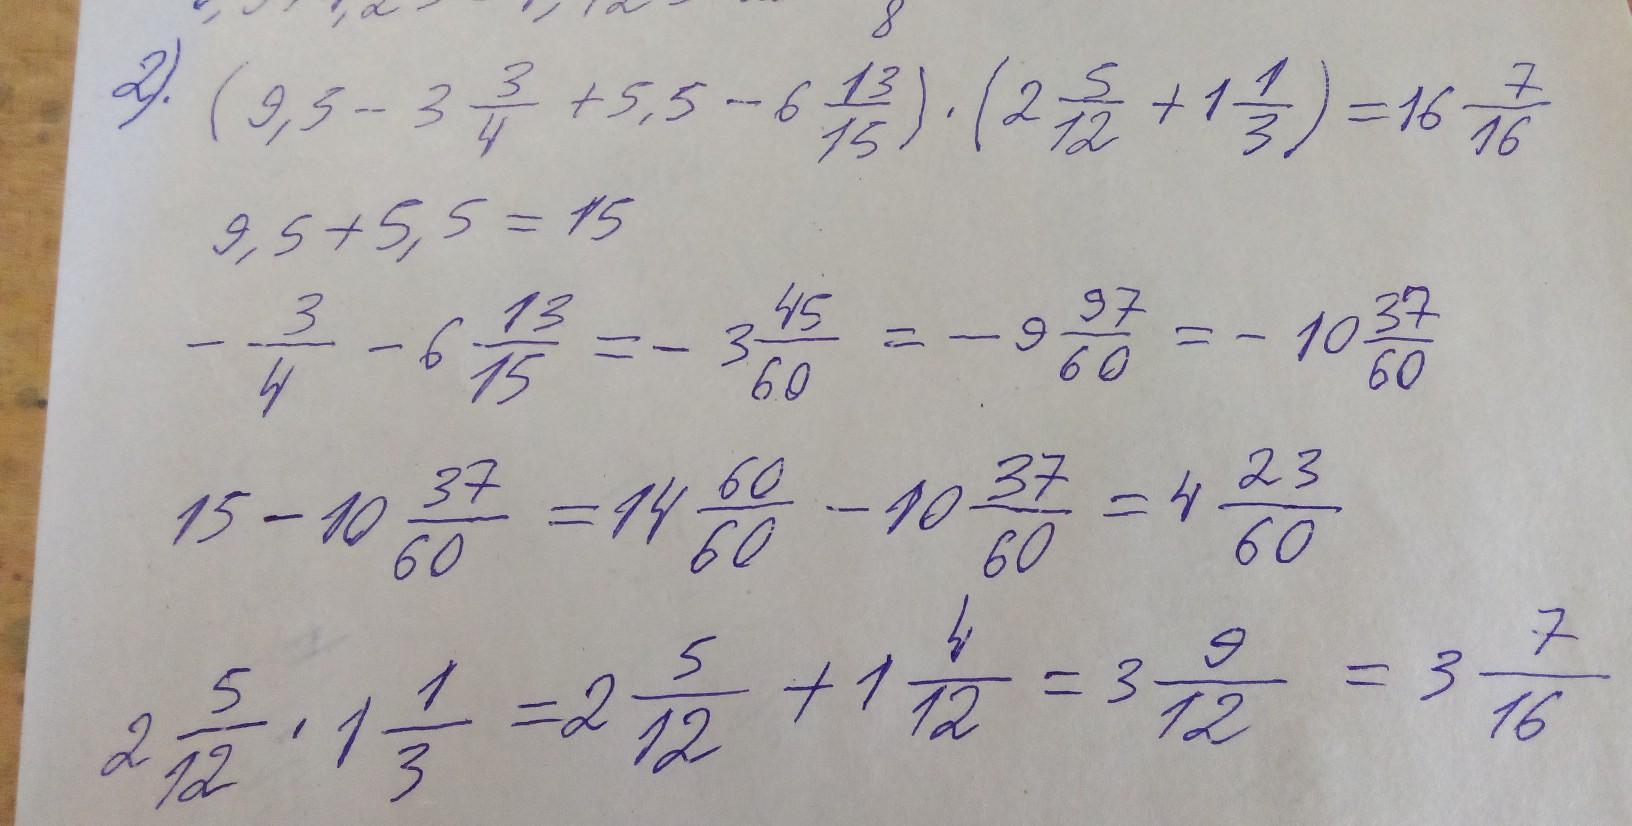 2). (9,5 - 3 3/4 + 5,5 - 6 13/15) · (2 5/12 + 1 1/3) = 16 7/16
9,5 + 5,5 = 15
- 3/4 - 6 13/15 = - 3 45/60 = - 9 97/60 = - 10 37/60
15 - 10 37/60 = 14 60/60 - 10 37/60 = 4 23/60
2 5/12 · 1 1/3 = 2 5/12 + 1 4/12 = 3 9/12 = 3 7/16